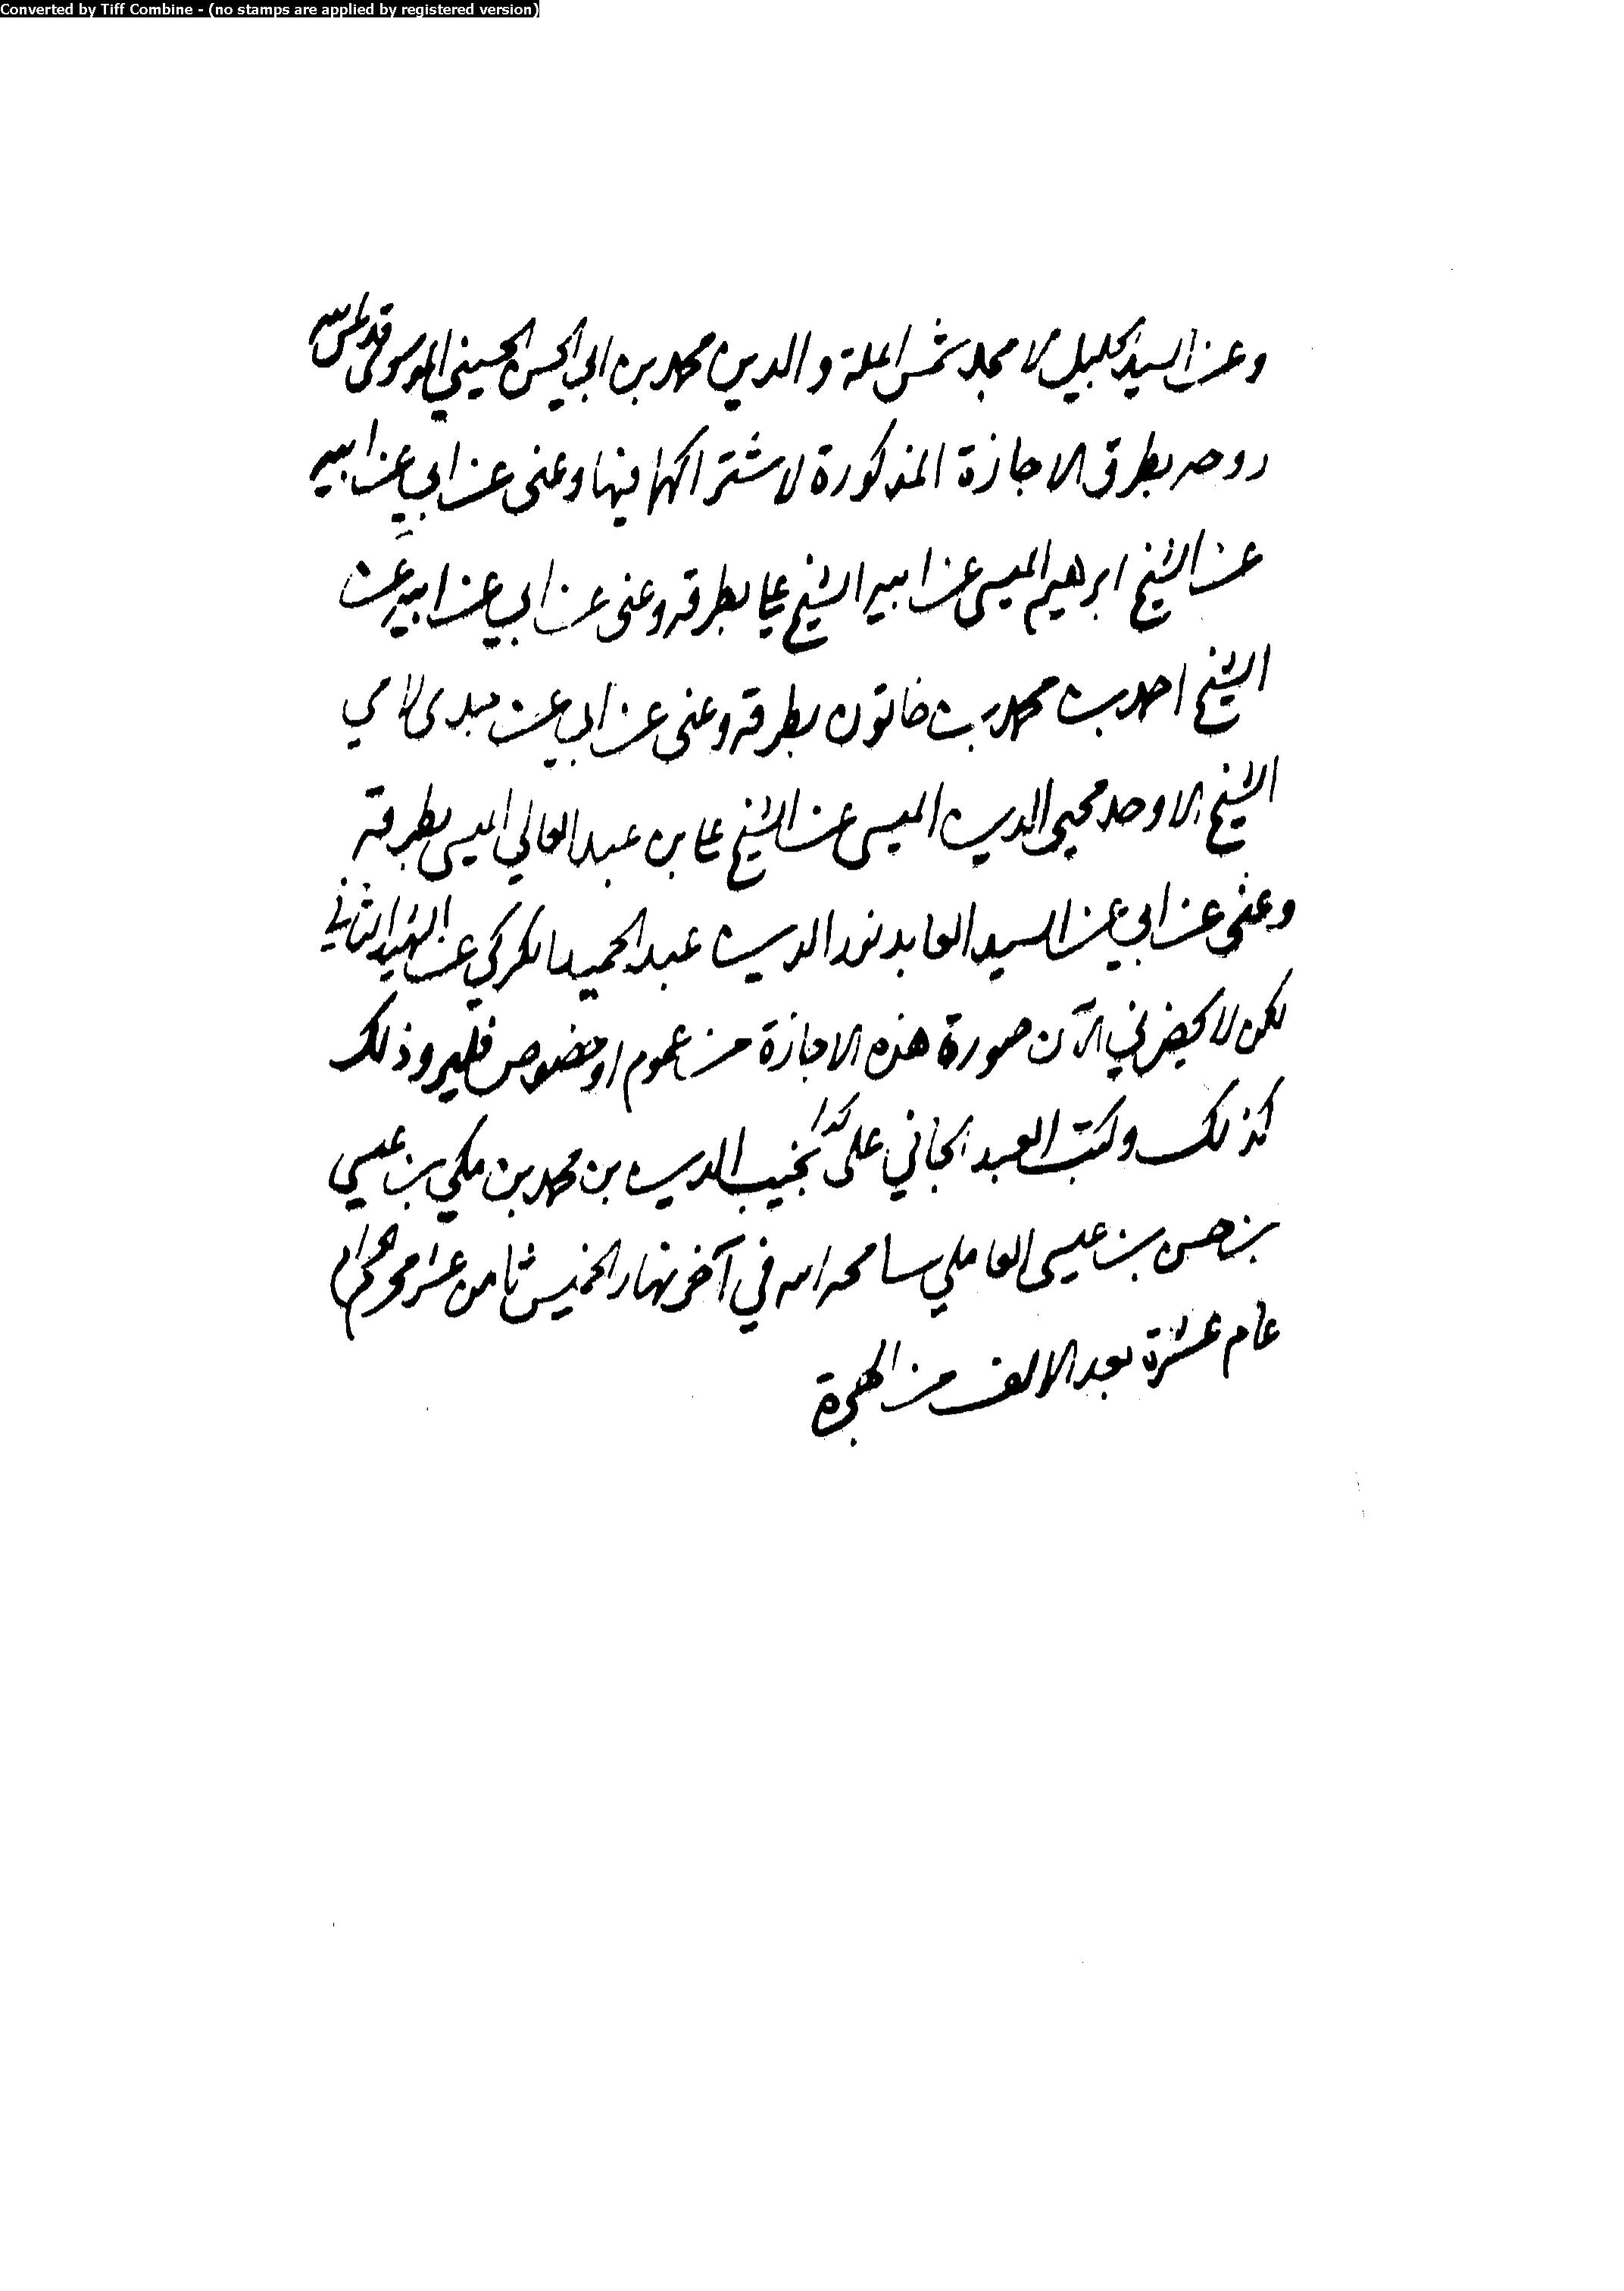 Converted by Tiff Combine - (no stamps are applied by registered version)
وعن السيد الجليل الامجد شمس الملة والدين محمد بن ابي الحسن الحسيني الموسوي قدس الله
روحه بطرق الاجازة المذكورة لاشتراكهما فيها وعني عن ابي عن ابيه
عن الشيخ ابرهيم الميسي عن ابيه الشيخ علي بطرقه وعني عن ابي عن ابيه عن
الشيخ احمد بن محمد بن خاتون بطرقه وعني عن ابي عن جدي لامي
الشيخ الاوحد محيي الدين الميسي عن الشيخ علي بن عبد العالي الميسي بطرقه
وعني عن ابي عن السيد العابد نور الدين عبد الحميد الكركي عن الشهيد الثاني
لكن لا يحضرني الآن صورة هذه الاجازة من عموم او خصوص فليرو ذلك
كذلك وكتب العبد الجاني على نجيب الدين بن محمد بن مكي بن عيسى
بن حسن بن عيسى العاملي سامحه الله في آخر نهار الخميس ثامن عشر محرم الحرام
عام عشرة بعد الالف من الهجرة